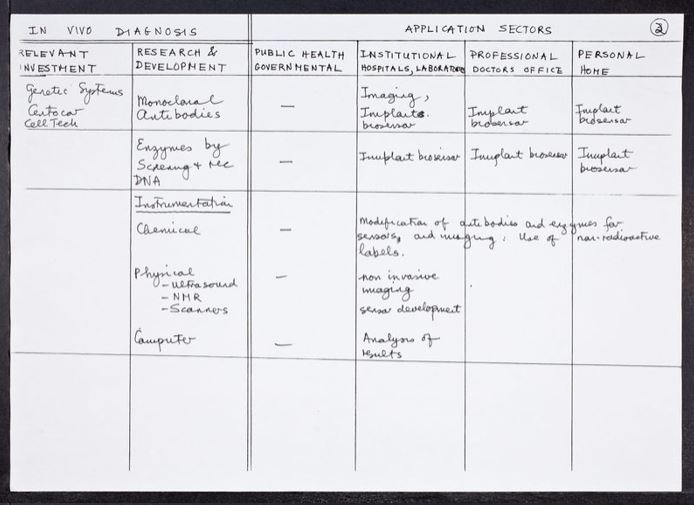 IN VIVO DIAGNOSIS
APPLICATION SECTORS
2
RELEVANT INVESTMENT
RESEARCH & DEVELOPMENT
PUBLIC HEALTH GOVERNMENTAL
INSTITUTIONAL HOSPITALS, LABORATORY
PROFESSIONAL DOCTORS OFFICE
PERSONAL HOME
Genetic Systems
Centocor
CellTech
Monoclonal
Antibodies
—
Imaging,
Implants.
biosensor
Implant
biosensor
Implant
biosensor
Enzymes by
Screening + rec
DNA
—
Implant biosensor
Implant biosensor
Implant
biosensor
Instrumentation
Chemical
—
Modification of antibodies and enzymes for
sensors, and imaging. Use of non-radioactive
labels.
Physical
- ultrasound
- NMR
- Scanners
—
non invasive
imaging
sensor development
Computer
—
Analysis of
results